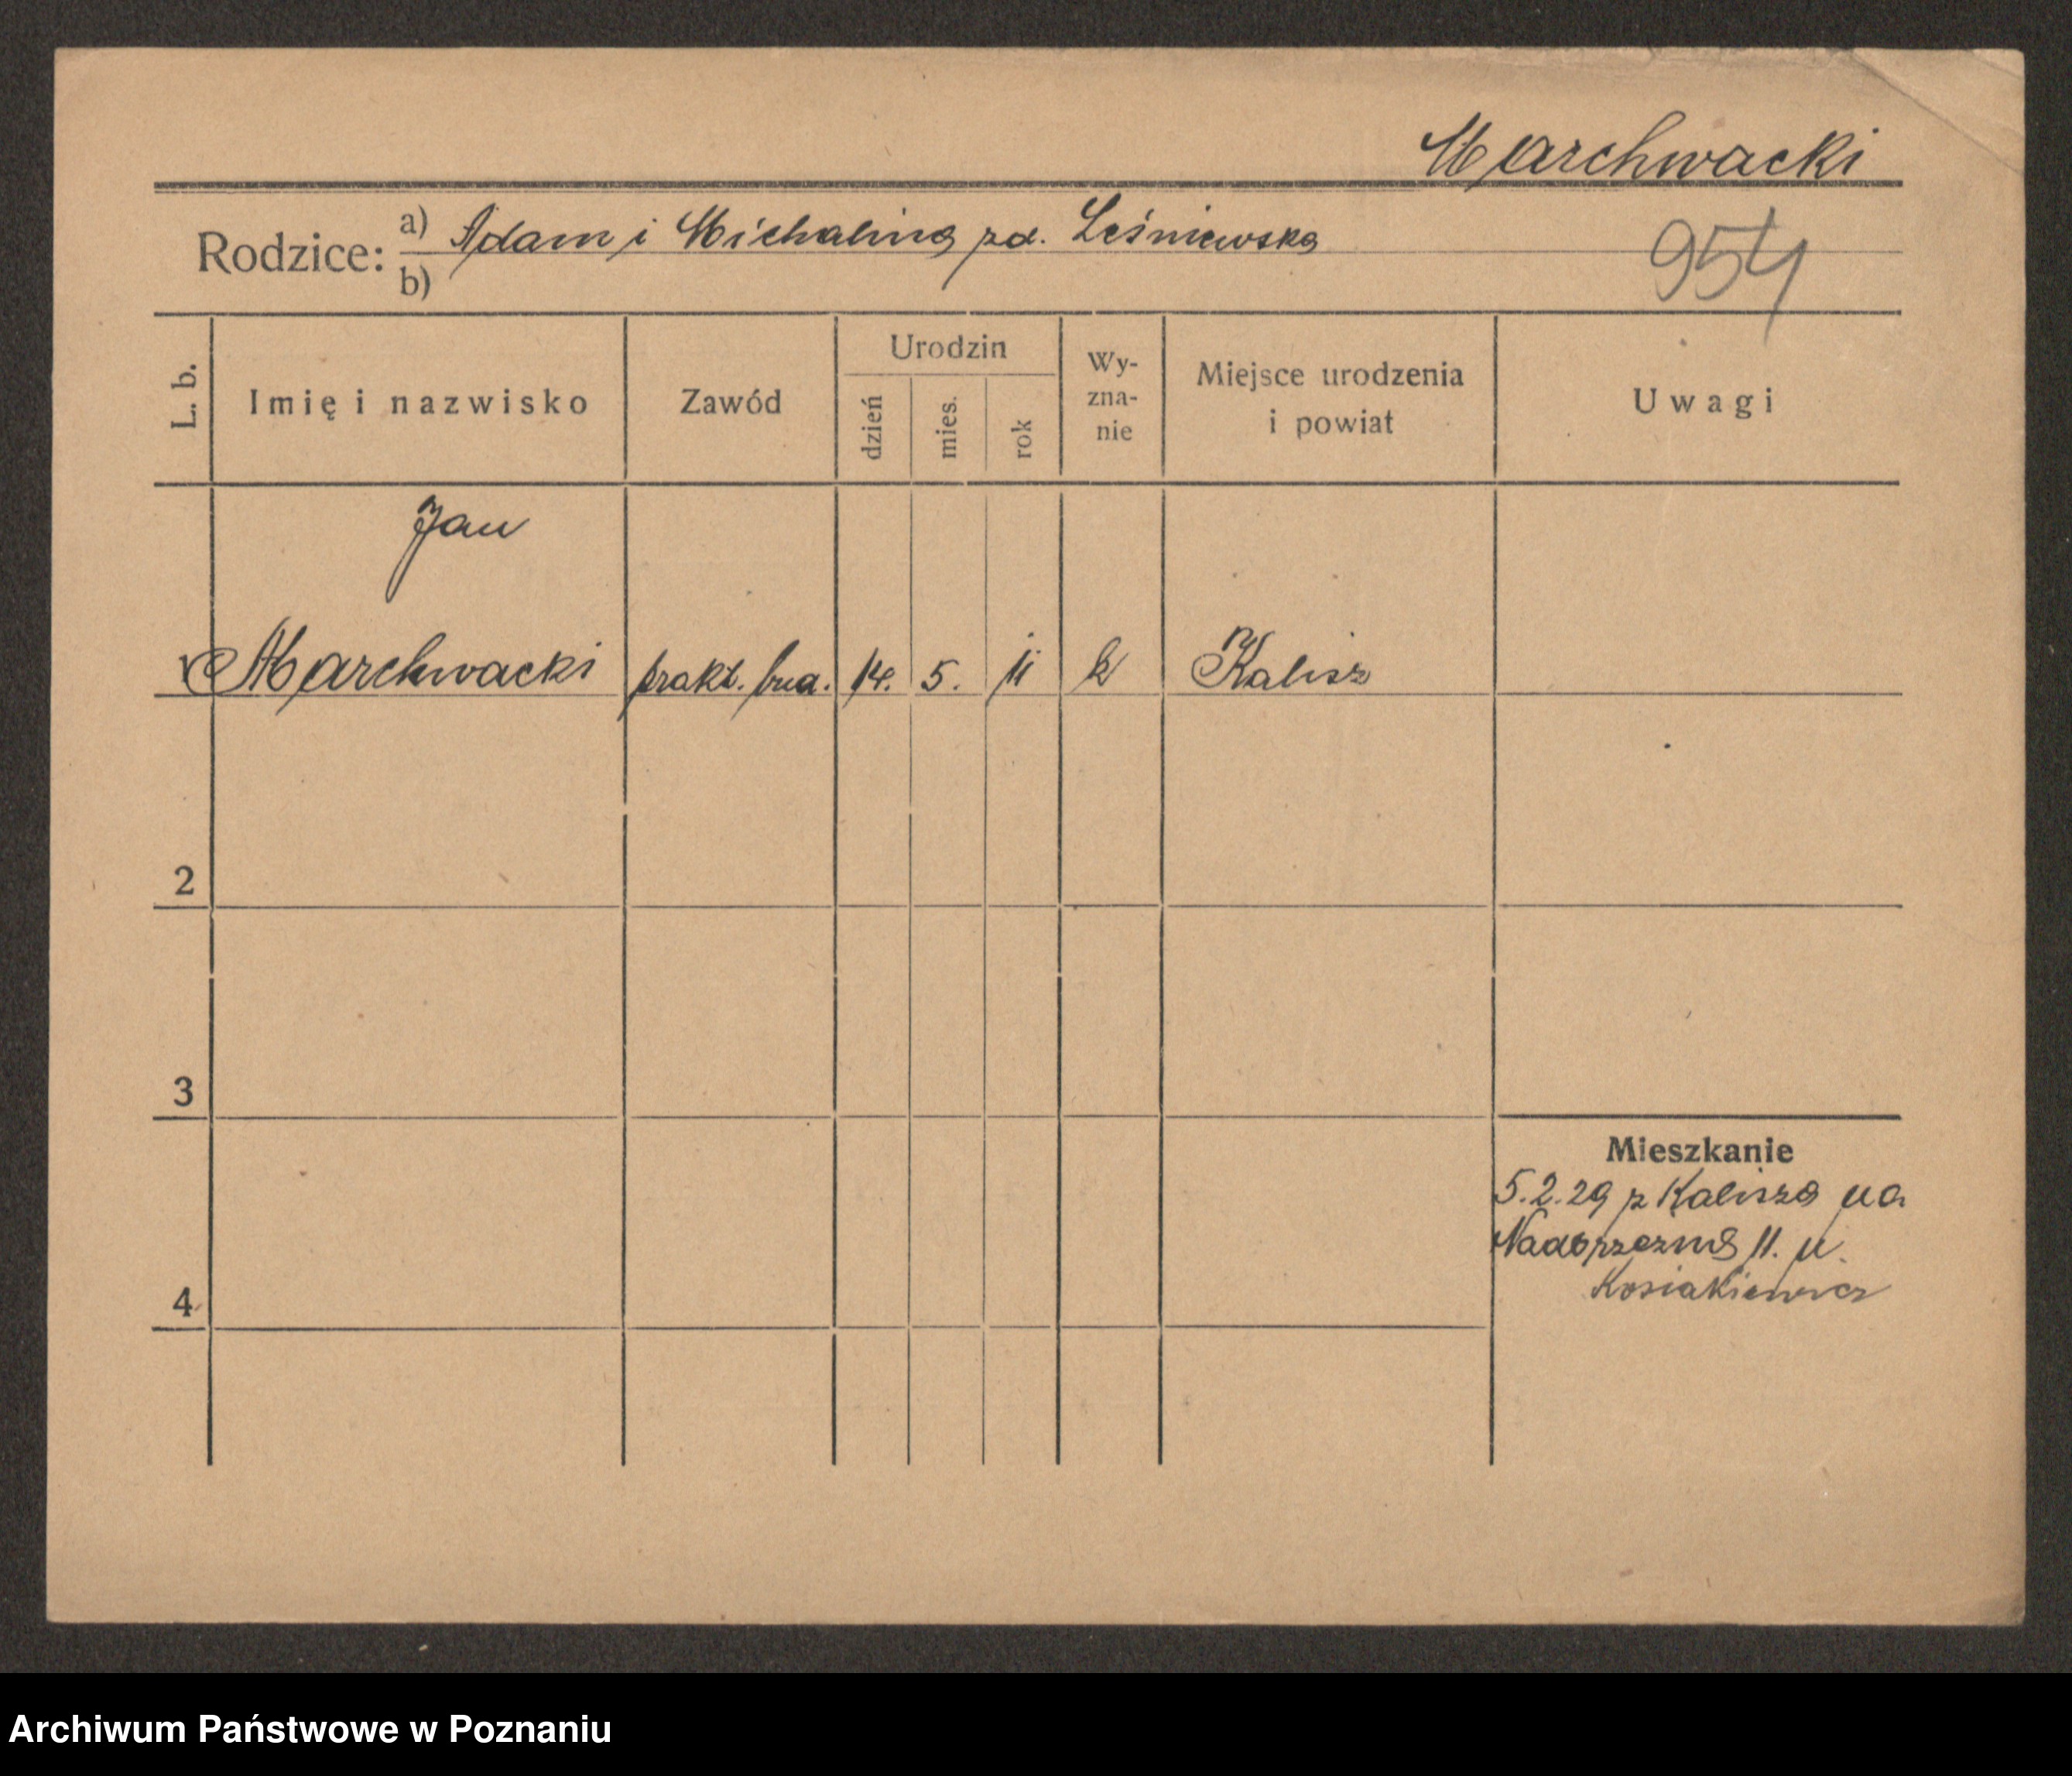 Marchwacki
Rodzice: a) Adam i Michalina zd. Leśniewska
b)
954
L. b.
Imię i nazwisko
Zawód
Urodzin
dzień
mies.
rok
Wy-
zna-
nie
Miejsce urodzenia
i powiat
Uwagi
Jan
Marchwacki prakt. bud. 14. 5. 11 k Kalisz
2
3
4
Mieszkanie
5.2.29 z Kalisza na
Nadbrzezna 11. u
Kosiakiewicz
Archiwum Państwowe w Poznaniu